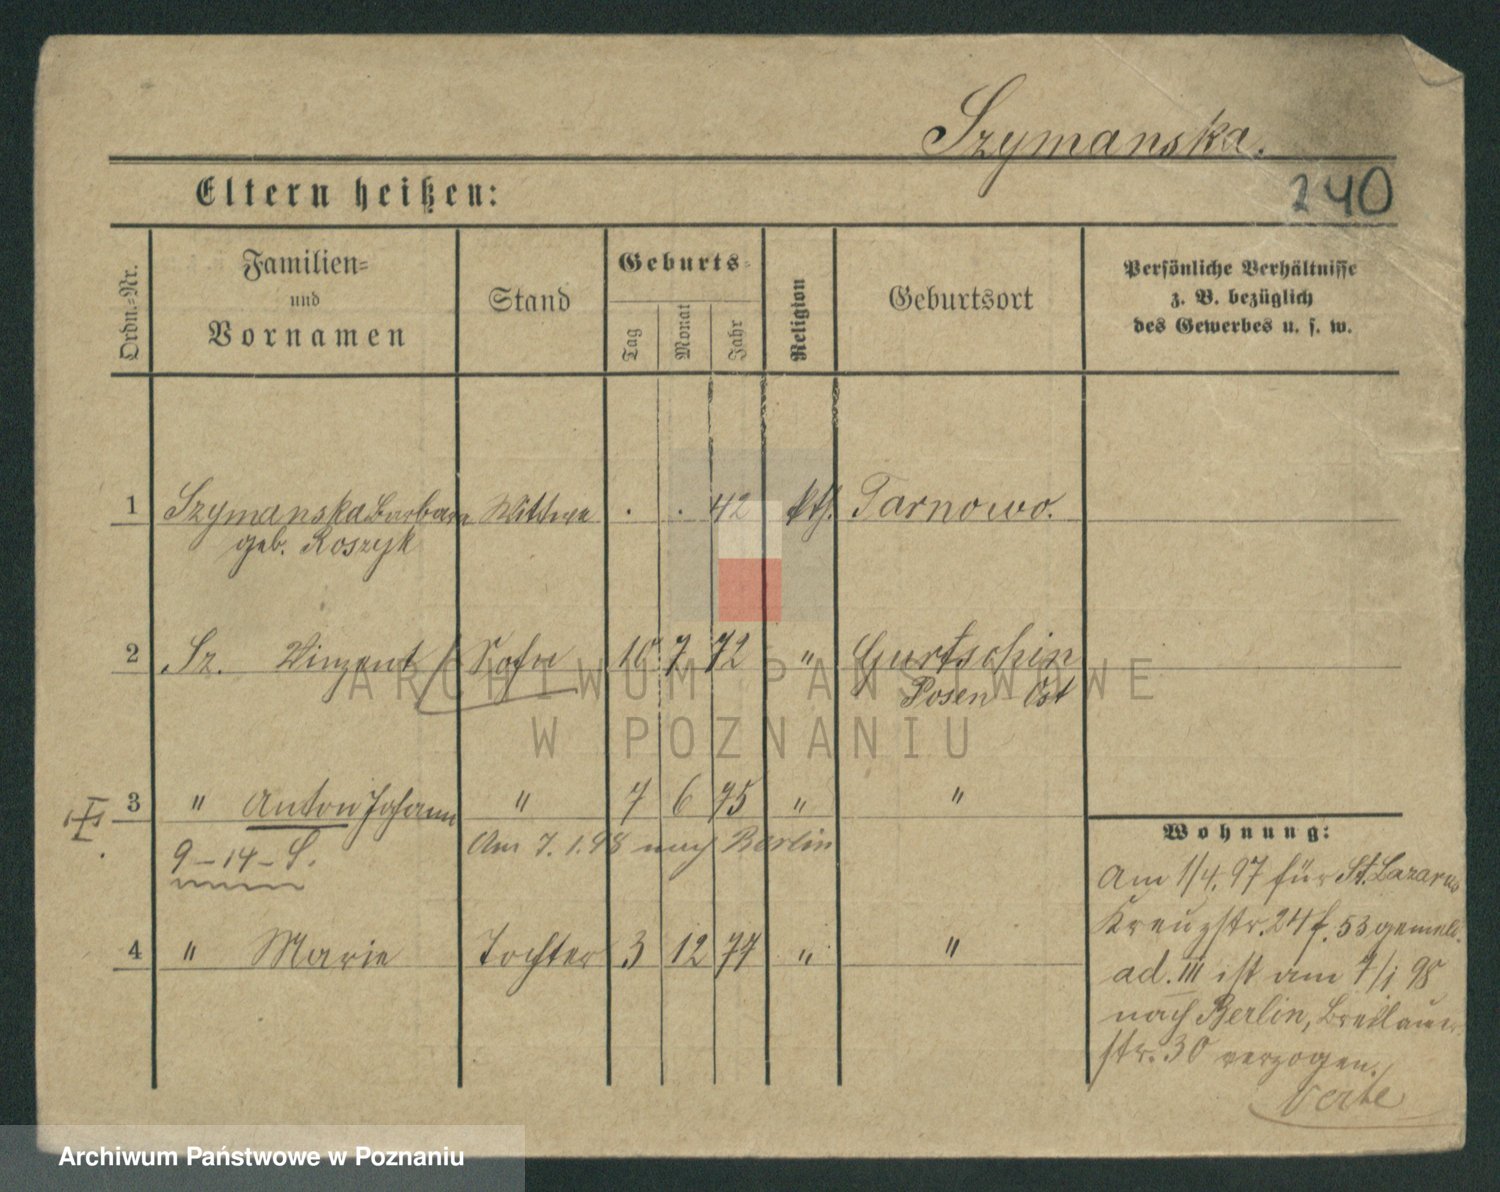 Szymanska.
Eltern heißen:
240
Ordn.-Nr.
Familien-
und
Vornamen
Stand
Geburts-
Tag
Monat
Jahr
Religion
Geburtsort
Persönliche Verhältnisse
z. B. bezüglich
des Gewerbes u. s. w.
1 Szymanska Barbara Wittwe . . 42 kth. Tarnowo.
geb. Roszyk
2 Sz. Vinzent Sohn 10 7 72 " Gurtschin
Posen Ost
3 " Anton Johann " 7 6 75 " "
Am 7.1.98 nach Berlin
9-14-S.
4 " Marie Tochter 3 12 77 " "
Wohnung:
Am 1/4. 97 für St. Lazarus
Kreuzstr. 24 f. 53 gemeld.
ad. III ist am 7/1 98
nach Berlin, Breslauer
str. 30 verzogen.
verte
ARCHIWUM PAŃSTWOWE
W POZNANIU
Archiwum Państwowe w Poznaniu